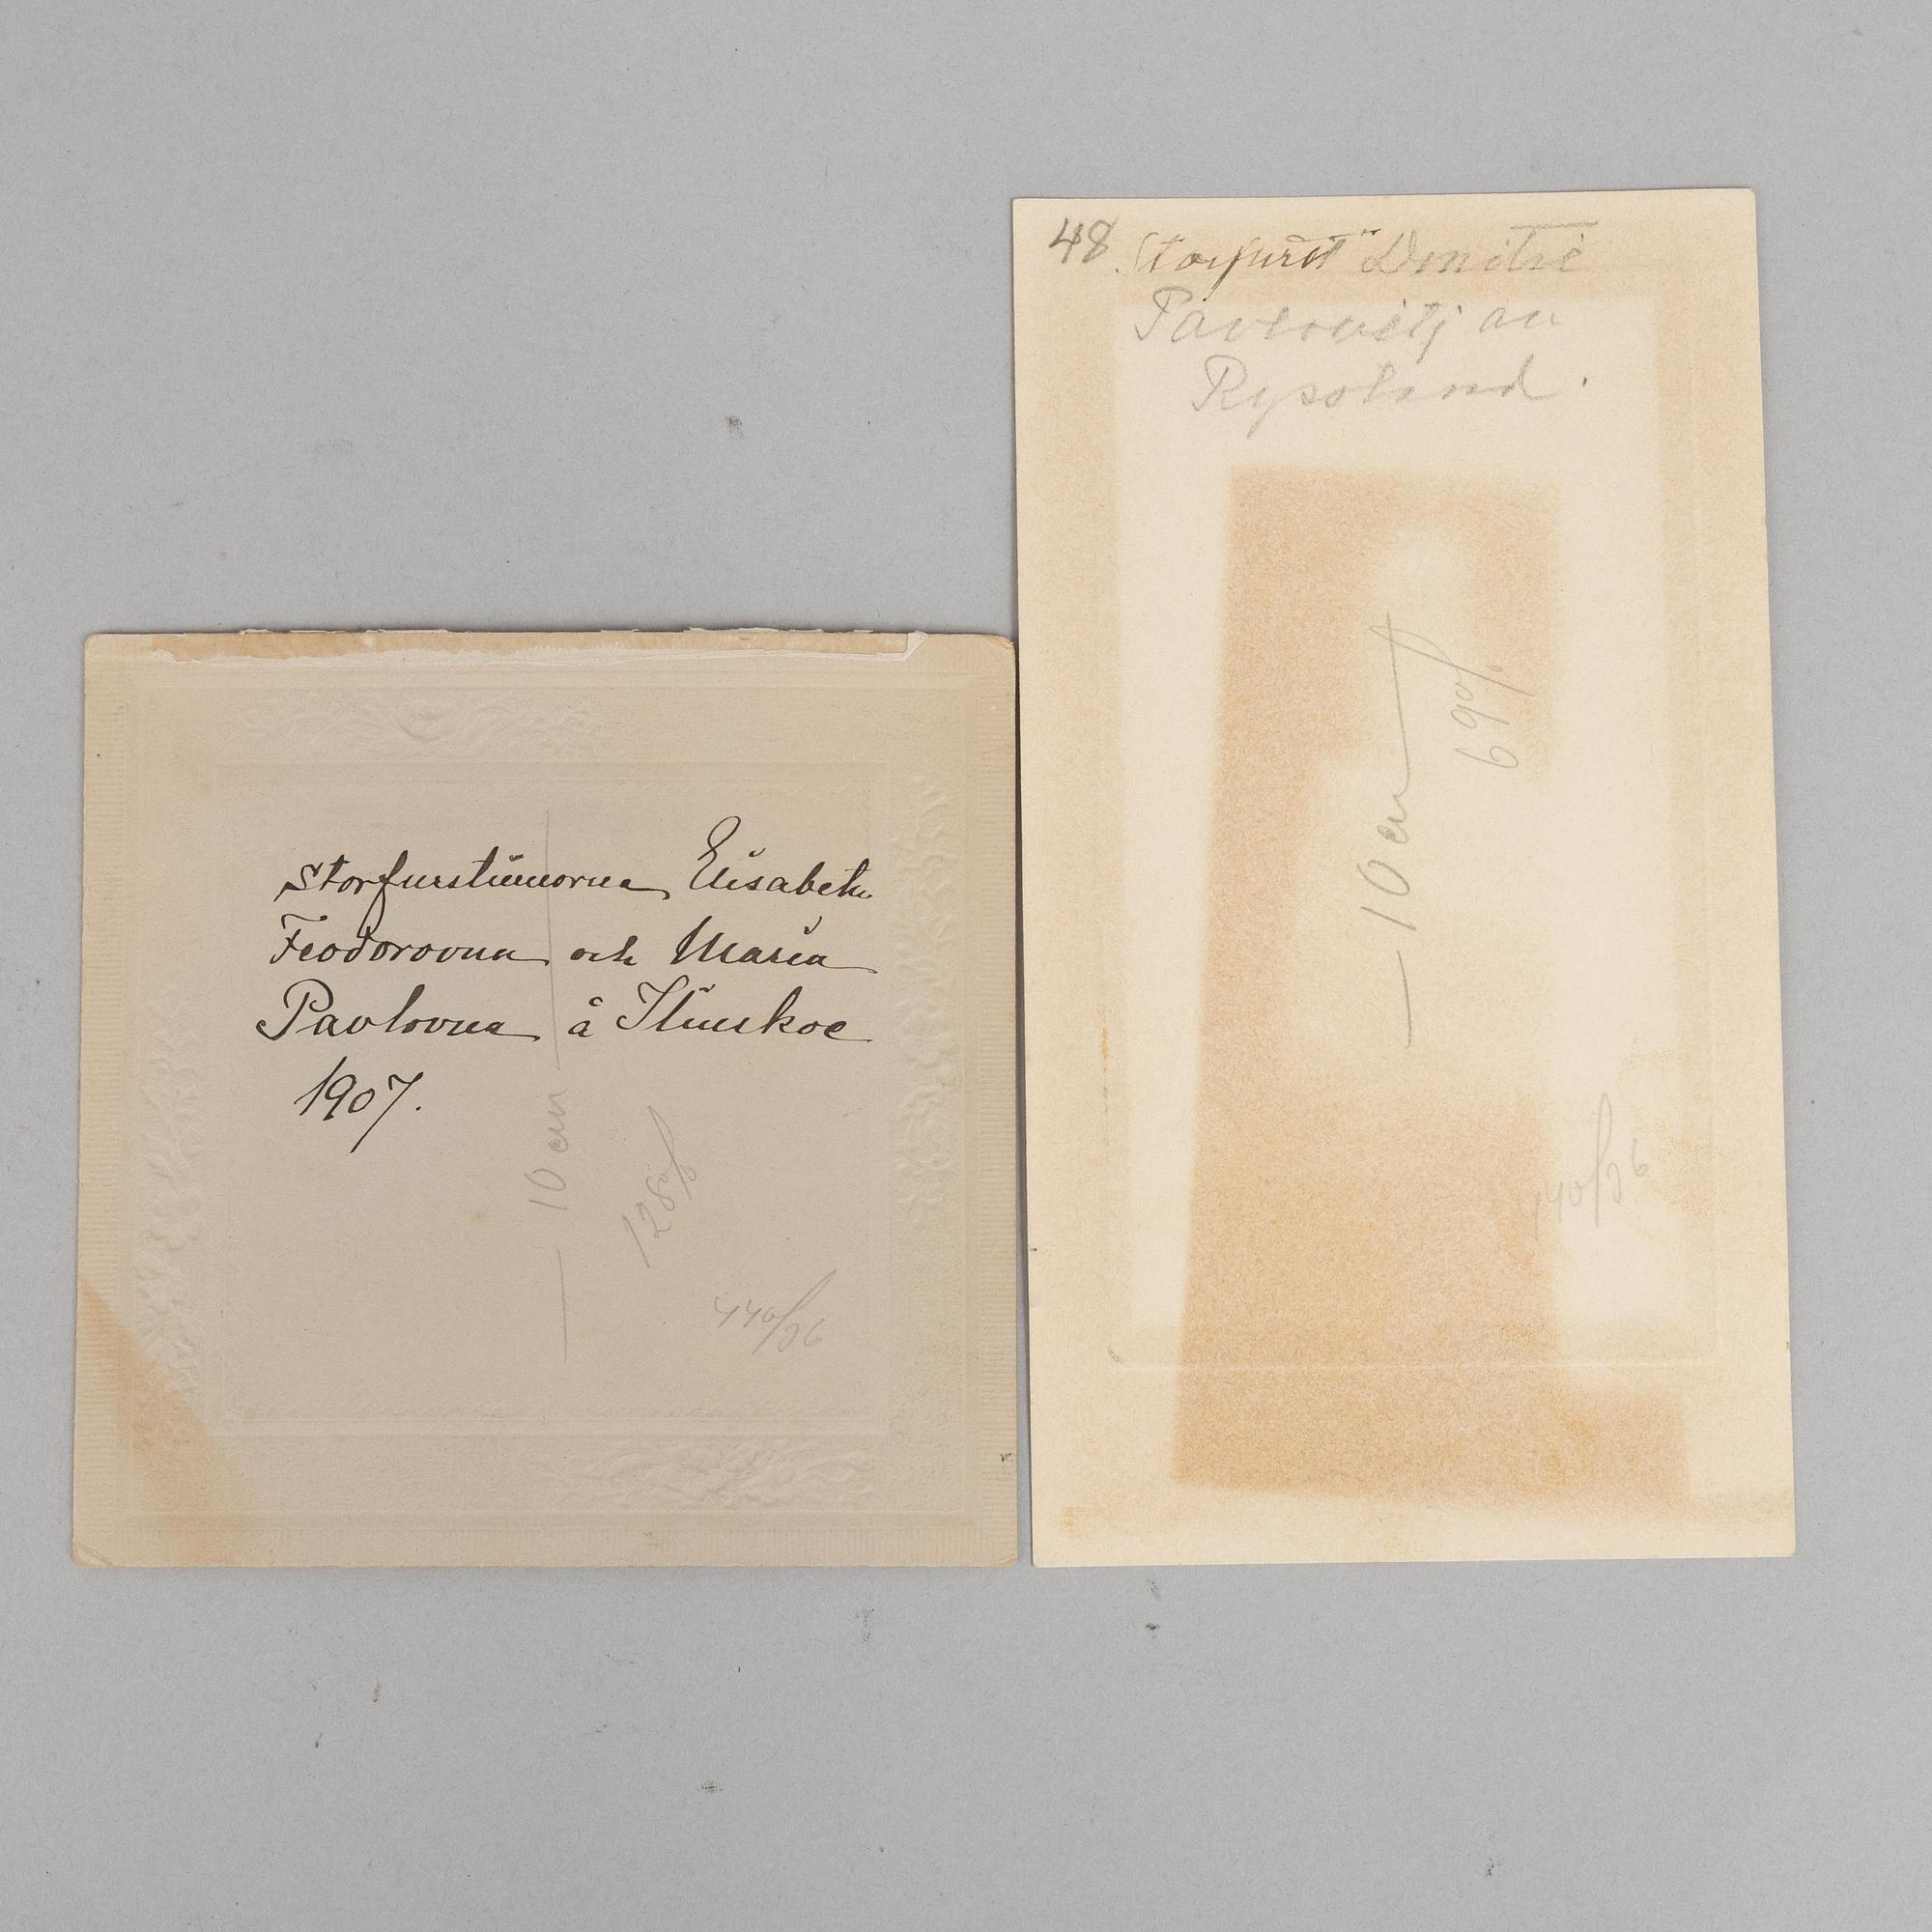 storfurstinnorna Elisabeth
Feodorovna och Maria
Pavlovna å Ilinskoe
1907.
— 10 cm —
128%
440/36
48 Storfurst Dmitri
Pavlovitj av
Ryssland.
— 10 cm —
69%
440/36